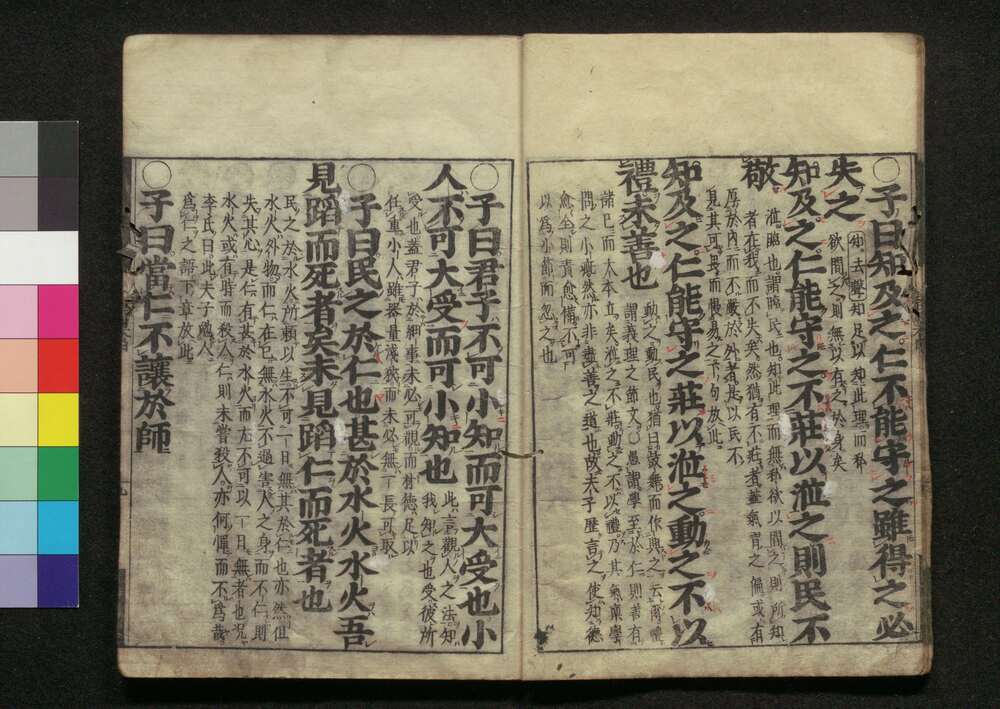 ○子曰知及之仁不能守之雖得之必
失之
知去聲○知足以知此理而私
欲間之則無以有之於身矣
知及之仁能守之不莊以涖之則民不
敬
涖臨也謂臨民也知此理而無私欲以間之則所知
者在我而不失矣然猶有不莊者蓋氣習之偏或有
厚於內而不嚴於外者是以民不
見其可畏而慢易之下句放此
知及之仁能守之莊以涖之動之不以
禮未善也
動之動民也猶曰鼓舞而作興之云爾禮
謂義理之節文○愚謂學至於仁則善有
諸己而大本立矣涖之不莊動之不以禮乃其氣稟學
問之小疵然亦非盡善之道也故夫子歷言之使知德
愈全則責愈備不可
以為小節而忽之也
○子曰君子不可小知而可大受也小
人不可大受而可小知也
此言觀人之法知
我知之也受彼所
受也蓋君子於細事未必可觀而材德足以
任重小人雖器量淺狹而未必無一長可取
○子曰民之於仁也甚於水火水火吾
見蹈而死者矣未見蹈仁而死者也
民之於水火所賴以生不可一日無其於仁也亦然但
水火外物而仁在己無水火不過害人之身而不仁則
失其心是仁有甚於水火而尤不可以一日無者也况
水火或有時而殺人仁則未嘗殺人亦何憚而不爲哉
李氏曰此夫子勉人
爲仁之語下章放此
○子曰當仁不讓於師